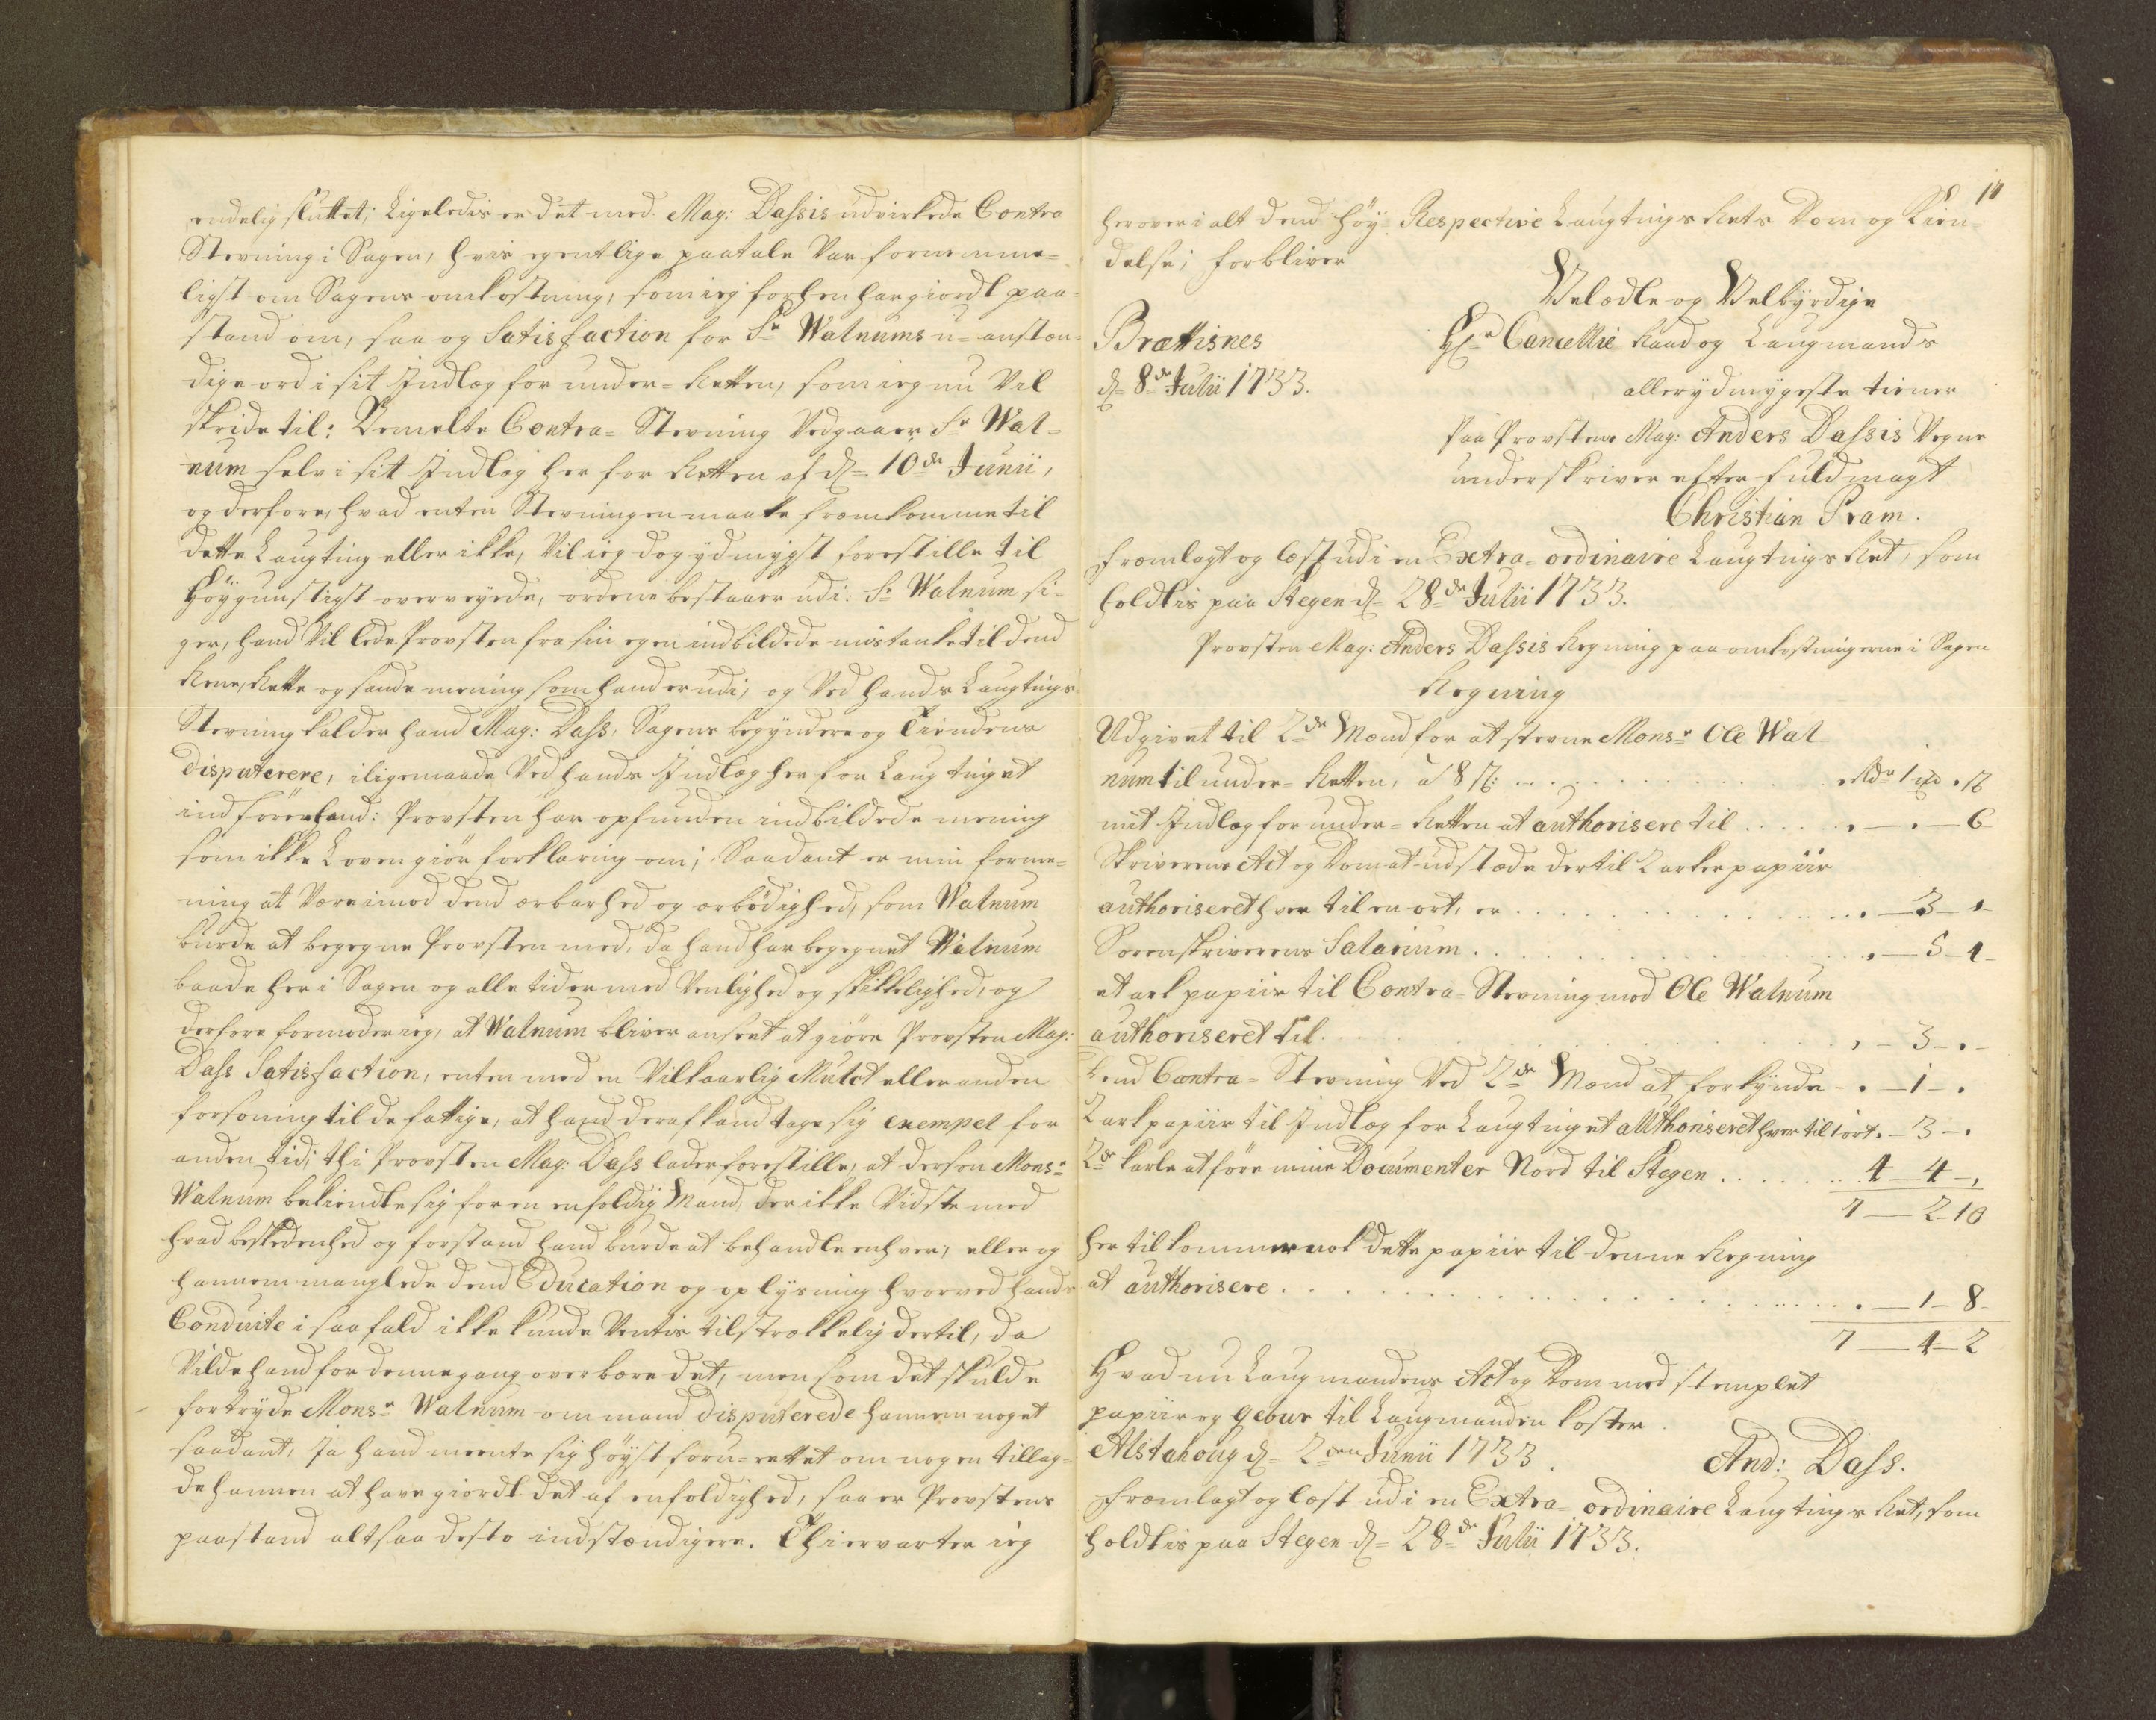 endelig sluttet; Ligeledis er det med Mag: Dassis udvirkede Contra
Stevning i Sagen, hvis egentlige paatale Var fornemme=
ligst om Sagens omkostning, som ieg forhen har giordt paa=
stand om, saa og Satisfaction for Sr Walnums u=anstæn=
dige ord i sit Indlæg for under=Retten, som ieg nu Vil
skride til: Bemelte Contra=Stevning Vedgaaer Sr Wal=
num selv i sit Indlæg her for Retten af d= 10de Junii,
og derfore, hvad enten Stevningen maatte fremkomme til
dette Laugting eller ikke, Vil ieg dog ydmygst forestille til
Höygunstigst overveyede, ordene bestaaer udi: Sr Walnum si=
ger, hand Vil lede Provsten fra sin egen indbildede mistanke til dend
Rene, Rette og sande mening som hand er udi, og Ved hands Laugtings
Stevning kalder hand Mag: Dass, Sagens begyndere og Tiendens
Disputerere, iligemaade Ved hands Indlæg her for Laugtinget
indförer hand: Provsten har opfunden indbildede mening
som ikke Loven giör forklaring om; Saadant er min forme=
ning at Være imod dend ærbarhed og ærbödighed, som Walnum
burde at begegne Provsten med, da hand har begegnet Walnum
baade her i Sagen og alle tider med Venlighed og skikkelighed, og
derfore formoder ieg, at Walnum bliver anseet at giöre Provsten Mag:
Dass Satisfaction, enten med en Vilkaarlig Mulct eller anden
forsoning til de fattige, at hand deraf kand tage sig exempel for
anden tid; thi Provsten Mag: Dass lader forestille, at dersom Monsr
Walnum bekiendte sig for en enfoldig Mand, der ikke Vidste med
hvad beskedenhed og forstand hand burde at behandle enhver, eller og
hannem manglede dend Education og oplysning hvorved hands
Conduite i saa fald ikke kunde Ventis tilstrækkelig dertil, da
Vilde hand for denne gang overbære det, men som det skulde
fortryde Monsr Walnum om mand disputerede hannem noget
saadant, Ja hand meente sig höyst foru=rettet om nogen tillag=
de hannem at have giordt det af enfoldighed, saa er Provstens
paastand altsaa desto indstændigere. Thi ervarter ieg
10
herover i alt dend höy Respective Laugtings Rets Dom og Kien=
delse; forbliver
Velædle og Velbyrdige
Hr Cancellie Raad og Laugmands
Brættisnes
d= 8de Julii 1733.
allerydmygeste tiener
Paa Provstens Mag: Anders Dassis Vegne
underskriver efter fuldmagt
Christian Pram.
Fremlagt og læst udi en Extra=ordinaire Laugtings Ret, som
holdtis paa Stegen d= 28de Julii 1733.
Provsten Mag: Anders Dassis Regning paa omkostningerne i Sagen
Regning
Udgivet til 2de Mænd for at stevne Monsr Ole Wal=
num til under=Retten, à 8 s: . . . . . Rdr 1 . s
mit Indlæg for under=Retten at authorisere til . . . . . — . — 6
Skriverens Act og Dom at udstæde dertil 2 arker papiir
authoriseret hver til en ort, er . . . . . — 3 — .
Sorenskriverens Salarium . . . . . — 5 — 4
et ark papiir til Contra=Stevning mod Ole Walnum
authoriseret til . . . . . — 3 — .
Dend Contra=Stevning Ved 2de Mænd at forkynde — . — 1 — .
2 ark papiir til Indlæg for Laugtinget authoriseret hver til 1 ort . — 3 — .
2de karle at före mine Documenter Nord til Stegen . . . . . 4 — 4 — .
7 — 2 — 10
her til kommer nok dette papiir til denne Regning
at authorisere . . . . . — 1 — 8
7 — 4 — 2
Hvad nu Laugmandens Act og Dom med stemplet
papiir og gebur til Laugmanden koster.
Alstahoug d= 2den Junii 1733. And: Dass.
Fremlagt og læst udi en Extra=ordinaire Laugtings Ret, som
holdtis paa Stegen d= 28de Julii 1733.